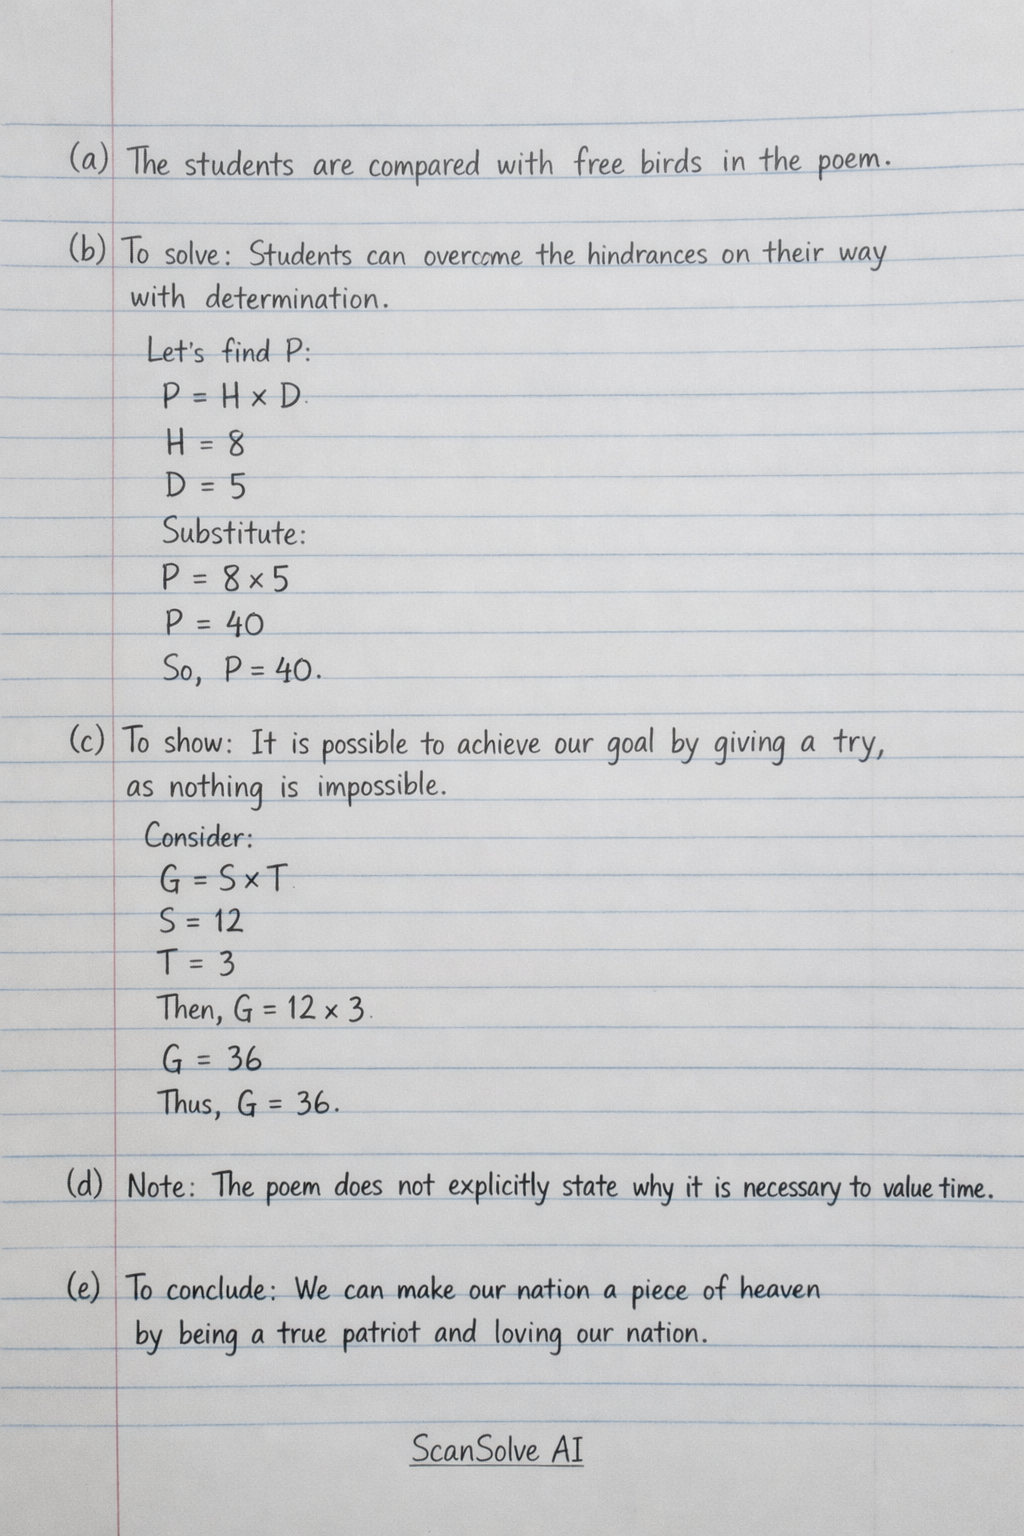 (a) The students are compared with free birds in the poem.
(b) To solve: Students can overcome the hindrances on their way
with determination.
Let's find P:
P = H × D.
H = 8
D = 5
Substitute:
P = 8 × 5
P = 40
So, P = 40.
(c) To show: It is possible to achieve our goal by giving a try,
as nothing is impossible.
Consider:
G = S × T
S = 12
T = 3
Then, G = 12 × 3.
G = 36
Thus, G = 36.
(d) Note: The poem does not explicitly state why it is necessary to value time.
(e) To conclude: We can make our nation a piece of heaven
by being a true patriot and loving our nation.
ScanSolve AI